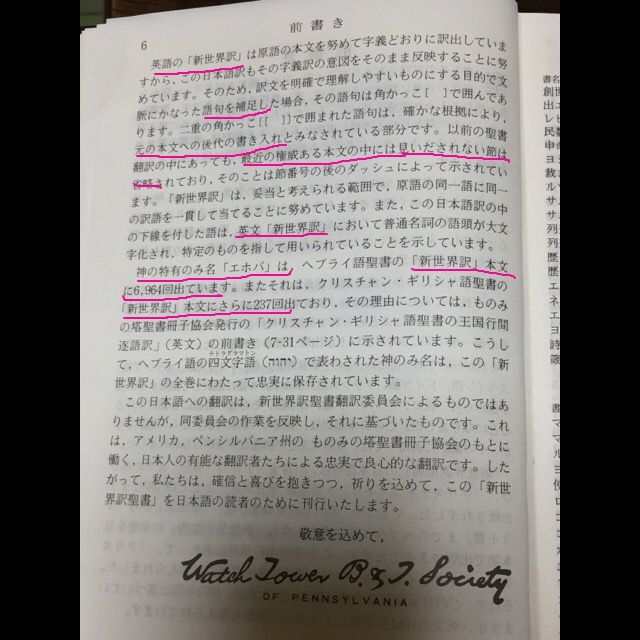 前書き
6
英語の「新世界訳」は原語の本文を努めて字義どおりに訳出していま
すから，この日本語訳もその字義訳の意図をそのまま反映することに努
めています。そのため，訳文を明確で理解しやすいものにする目的で文
脈にかなった語句を補足した場合，その語句は角かっこ［ ］で囲んであ
ります。二重の角かっこ［［ ］］で囲まれた語句は，確かな根拠により，
元の本文への後代の書き入れとみなされている部分です。以前の聖書
翻訳の中にあっても，最近の権威ある本文の中には見いだされない節は
省略されており，そのことは節番号の後のダッシュによって示されてい
ます。「新世界訳」は，妥当と考えられる範囲で，原語の同一語に同一
の訳語を一貫して当てることに努めています。また，この日本語訳の中
の下線を付した語は，英文「新世界訳」において普通名詞の語頭が大文
字化され，特定のものを指して用いられていることを示しています。
神の特有のみ名「エホバ」は，ヘブライ語聖書の「新世界訳」本文
に6,964回出ています。またそれは，クリスチャン・ギリシャ語聖書の
「新世界訳」本文にさらに237回出ており，その理由については，ものみ
の塔聖書冊子協会発行の「クリスチャン・ギリシャ語聖書の王国行間
逐語訳」（英文）の前書き（7-31ページ）に示されています。こうし
テトラグラマトン
て，ヘブライ語の四文字語（יהוה）で表わされた神のみ名は，この「新
世界訳」の全巻にわたって忠実に保存されています。
この日本語への翻訳は，新世界訳聖書翻訳委員会によるものではあ
りませんが，同委員会の作業を反映し，それに基づいたものです。これ
は，アメリカ，ペンシルバニア州の ものみの塔聖書冊子協会のもとに
働く，日本人の有能な翻訳者たちによる忠実で良心的な翻訳です。した
がって，私たちは，確信と喜びを抱きつつ，祈りを込めて，この「新世
界訳聖書」を日本語の読者のために刊行いたします。
敬意を込めて，
Watch Tower B. & T. Society
OF PENNSYLVANIA
書名
創世
出エ
レビ
民数
申命
ヨシ
裁き
ルツ
サム
サム
列王
列王
歴代
歴代
エズ
ネヘ
エス
ヨブ
詩編
箴